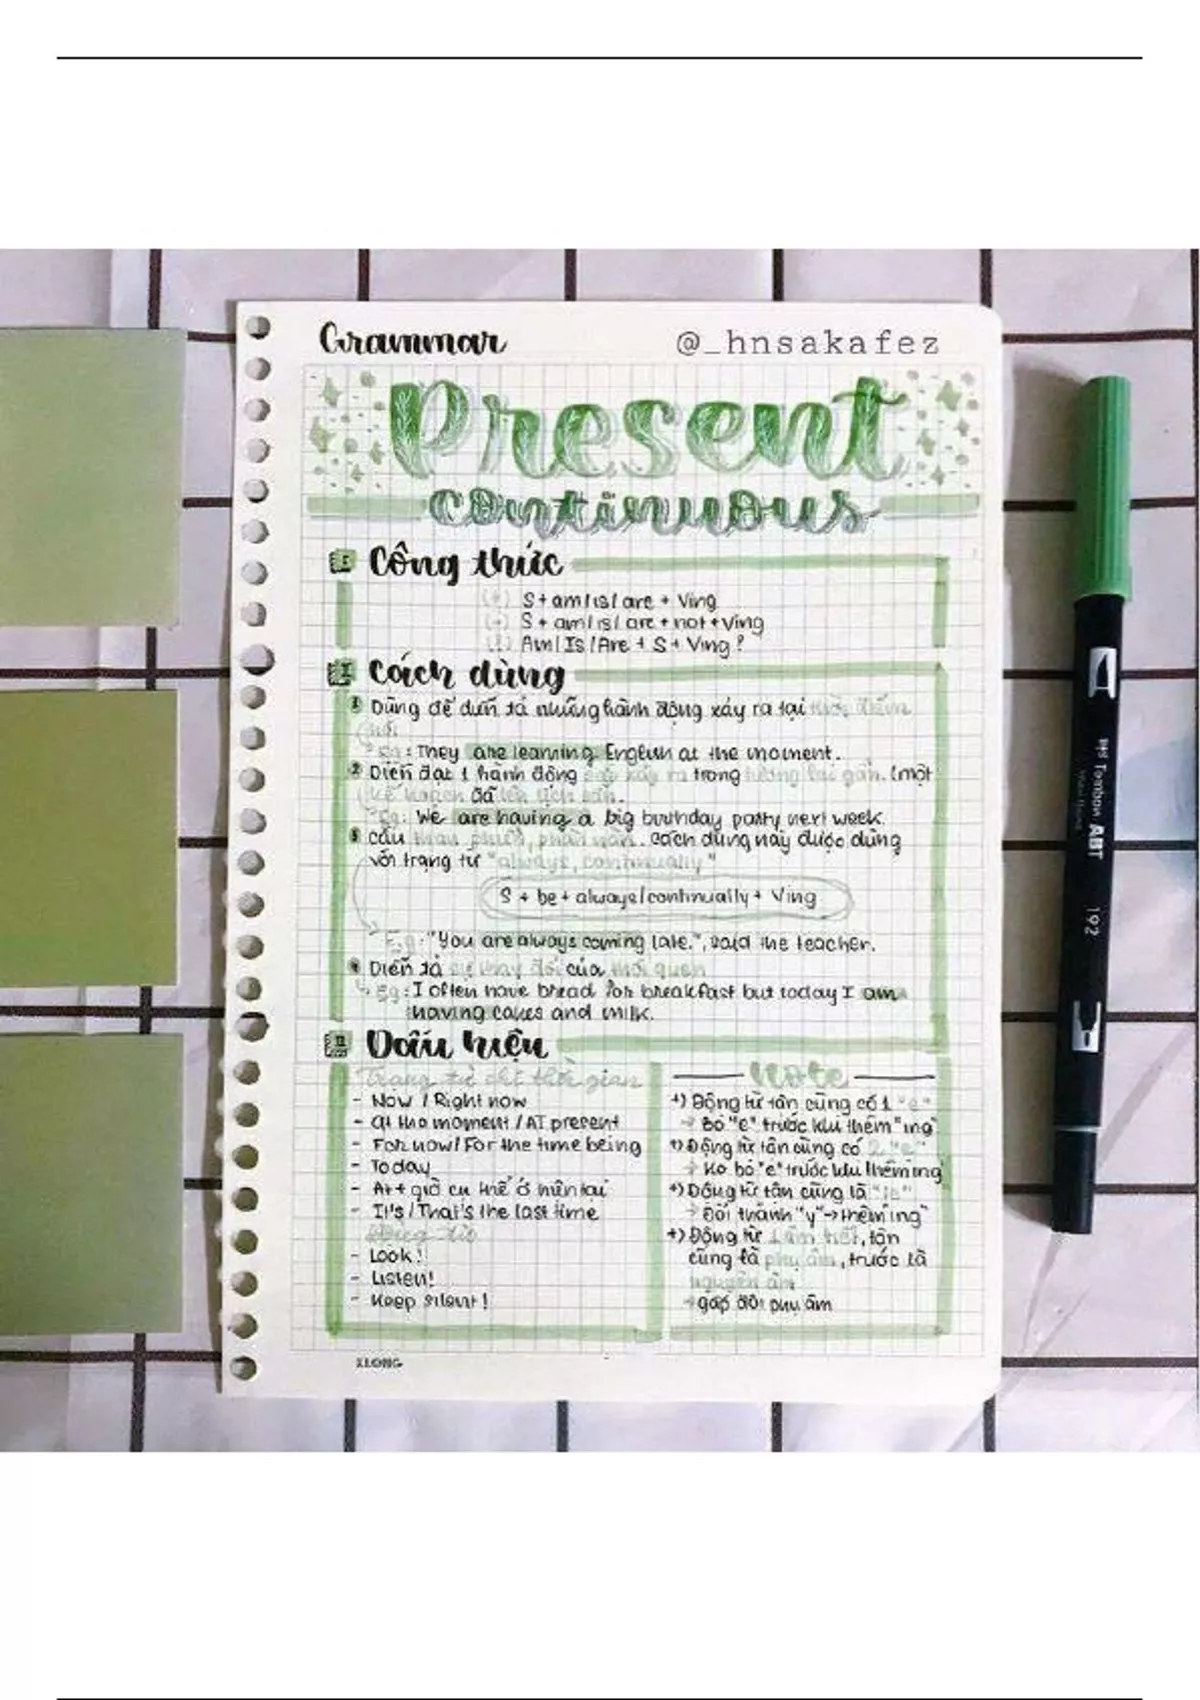 Grammar
@_hnsakafez
Present
continuous
I Công thức
(+) S + am / is / are + Ving
(-) S + am / is / are + not + Ving
(?) Am / Is / Are + S + Ving ?
II Cách dùng
1 Dùng để diễn tả những hành động xảy ra tại thời điểm
nói
Eg: They are learning English at the moment.
2 Diễn đạt 1 hành động sắp xảy ra trong tương lai gần. (một
kế hoạch đã lên lịch sẵn.
Eg: We are having a big birthday party next week.
3 Câu than phiền, phàn nàn. Cách dùng này được dùng
với trạng từ "always, continually"
S + be + always/continually + Ving
E.g: "You are always coming late.", said the teacher.
4 Diễn tả sự thay đổi của thói quen
Eg: I often have bread for breakfast but today I am
having cakes and milk.
III Dấu hiệu
Trạng từ chỉ thời gian
- Now / Right now
- At the moment / At present
- For now / For the time being
- Today
- At + giờ cụ thể ở hiện tại
- It's / That's the last time
Động từ
- Look!
- Listen!
- Keep silent!
Note
+) Động từ tận cùng có 1 "e"
→ Bỏ "e" trước khi thêm "ing"
+) Động từ tận cùng có 2 "e"
→ Ko bỏ "e" trước khi thêm ing
+) Động từ tận cùng là "ie"
→ Đổi thành "y" → thêm "ing"
+) Động từ 1 âm tiết, tận
cùng là phụ âm, trước là
nguyên âm
→ gấp đôi phụ âm
KLONG
Tombow ABT
192